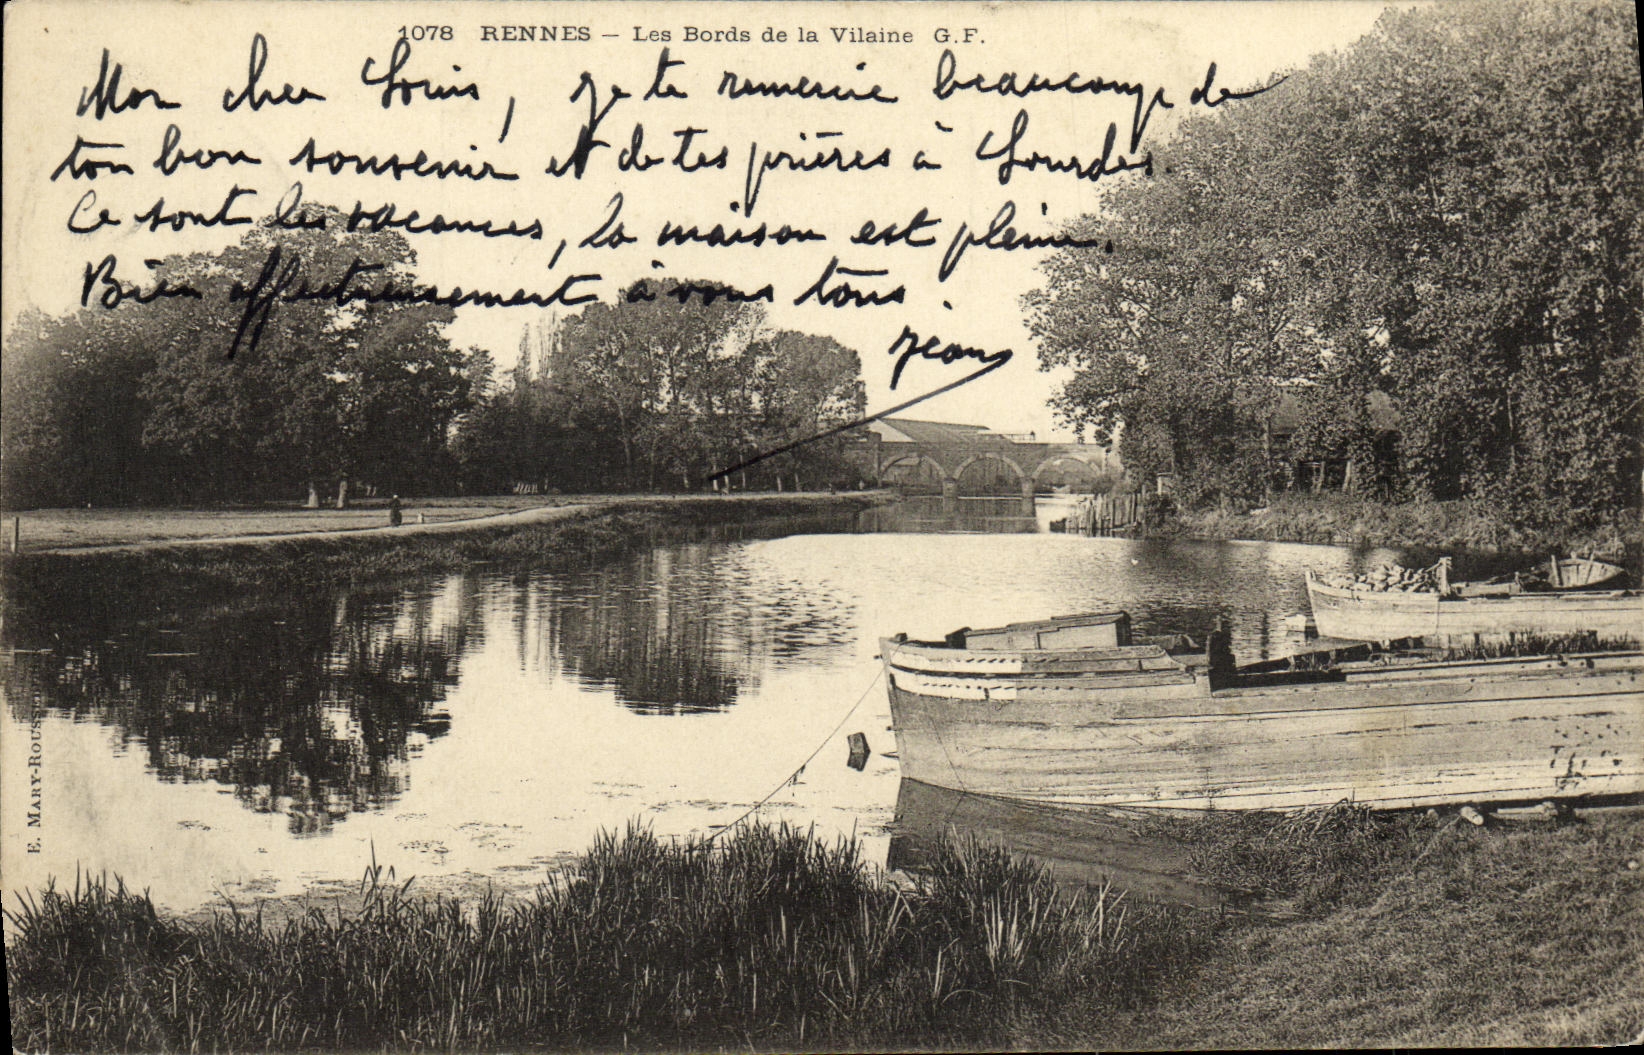 1078 RENNES – Les Bords de la Vilaine G.F.
Mon cher Louis, je te remercie beaucoup de
ton bon souvenir et de tes prières à Lourdes.
Ce sont les vacances, la maison est pleine.
Bien affectueusement à vous tous.
Jean
E. MARY-ROUSSEL